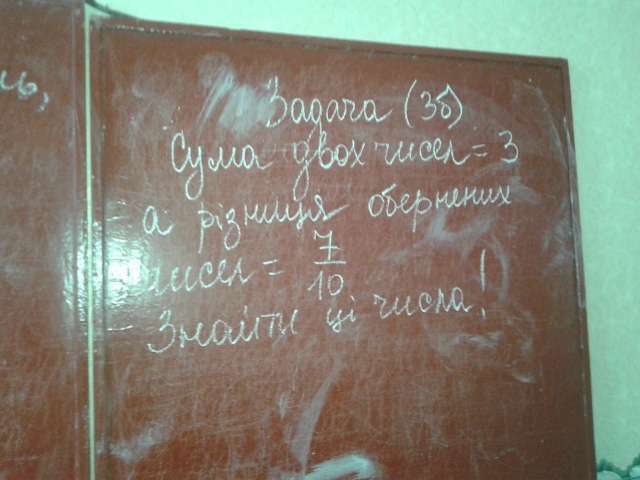 ль,
Задача (3б)
Сума двох чисел = 3
а різниця обернених
чисел = 7/10
Знайти ці числа!